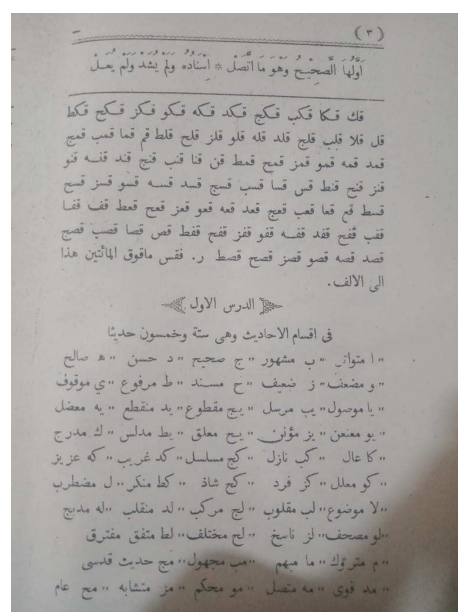 ( ٣ )
اَوَّلُهَا الصَّحِيحُ وَهْوَ مَا اتَّصَلْ * اِسْنَادُهُ وَلَمْ يُشَذَّ وَلَمْ يُعَـلْ
قك قكا قكب قكج قكد قكه قكو قكز قكح قكط
قل قلا قلب قلج قلد قله قلو قلز قلح قلط قم قما قمب قمج
قمد قمه قمو قمز قمح قمط قن قنا قنب قنج قند قنـه قنو
قنز قنح قنط قس قسا قسب قسج قسد قسـه قسو قسز قسح
قسط قع قعا قعب قعج قعد قعه قعو قعز قعح قعط قف قفـا
قفب قفج قفد قفـه قفو قفز قفح قفط قص قصا قصب قصج
قصد قصه قصو قصز قصح قصط ر. فقس مافوق المائتين هذا
الى الالف.
الدرس الاول
فى اقسام الاحاديث وهى ستة وخمسون حديثا
،، ا متواتر ،، ب مشهور ،، ج صحيح ،، د حسن ،، ه صالح
،، و مضعف ،، ز ضعيف ،، ح مسند ،، ط مرفوع ،، ي موقوف
،، يا موصول ،، يب مرسل ،، يج مقطوع ،، يد منقطع ،، يه معضل
،، يو معنعن ،، يز مؤنن ،، يح معلق ،، يط مدلس ،، ك مدرج
،، كا عال ،، كب نازل ،، كج مسلسل ،، كد غريب ،، كه عزيز
،، كو معلل ،، كز فرد ،، كح شاذ ،، كط منكر ،، ل مضطرب
،، لا موضوع ،، لب مقلوب ،، لج مركب ،، لد منقلب ،، له مدبج
،، لو مصحف ،، لز ناسخ ،، لح مختلف ،، لط متفق مفترق
،، م متروك ،، ما مبهم ،، مب مجهول ،، مج حديث قدسى
،، مد قوى ،، مه متصل ،، مو محكم ،، مز متشابه ،، مح عام